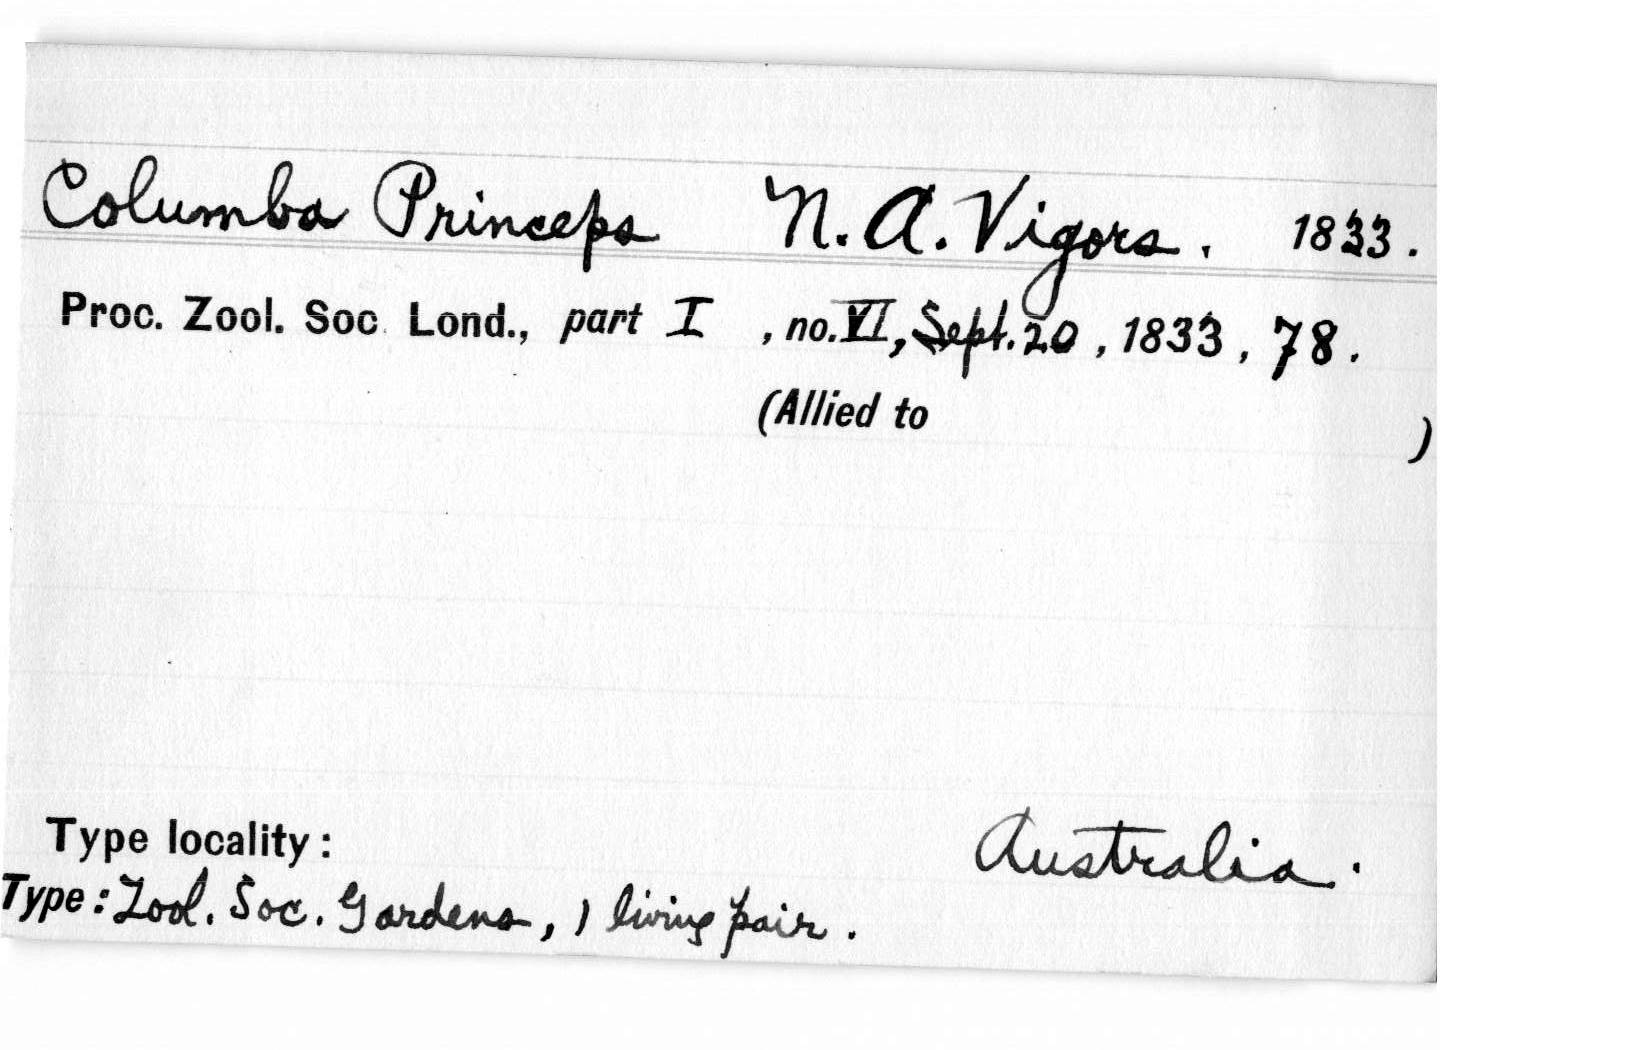 Columba Princeps N. A. Vigors. 1833.
Proc. Zool. Soc. Lond., part I, no. VI, Sept. 20, 1833, 78.
(Allied to )
Type locality: Australia.
Type: Zool. Soc. Gardens, 1 living pair.